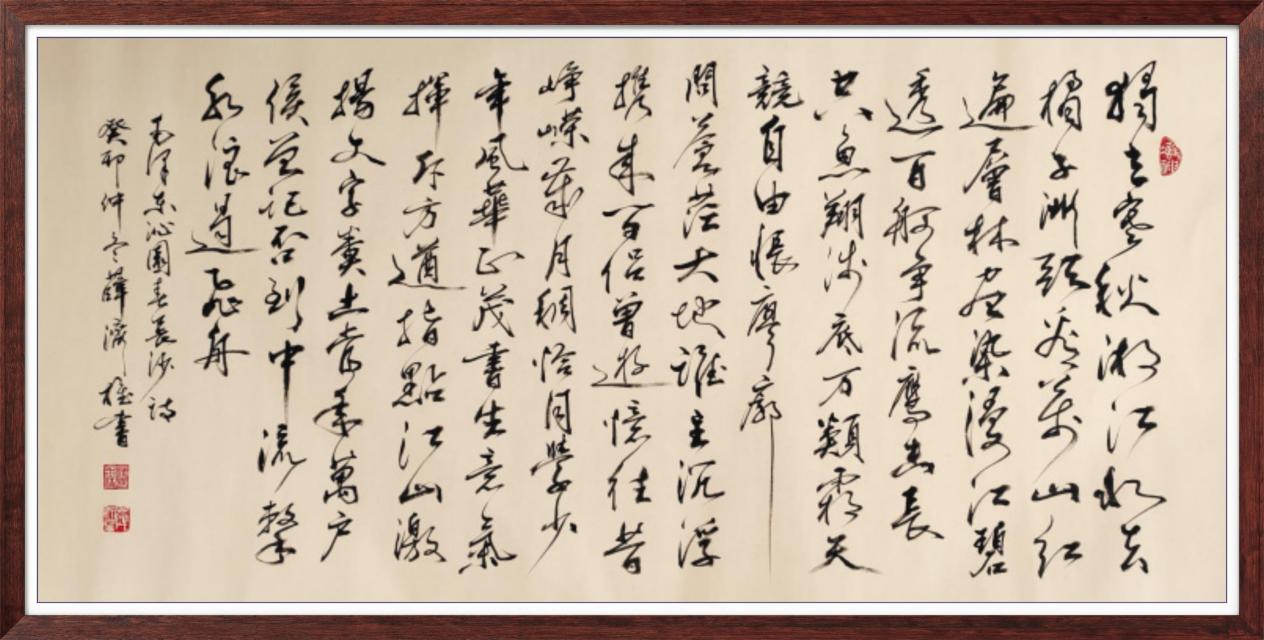 獨立寒秋湘江北去
橘子洲頭看萬山紅
遍層林盡染漫江碧
透百舸爭流鷹擊長
空魚翔淺底万類霜天
競自由悵廖廓
問蒼茫大地誰主沉浮
携來百侣曾游憶往昔
崢嶸歲月稠恰同學少
年風華正茂書生意氣
揮斥方遒指點江山激
揚文字糞土當年萬户
侯曾記否到中流擊
水浪遏飛舟
毛澤東沁園春長沙詩
癸卯仲冬薛濟書